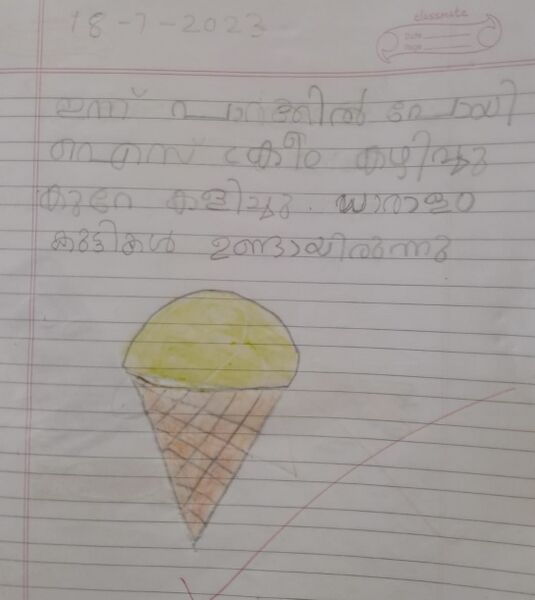 18-7-2023
classmate
Date
Page
ഇന്ന് പാറക്കിൽ പോയി
ഐസ് ക്രീം കഴിച്ചു
കുറേ കളിച്ചു. ധാരാളം
കുട്ടികൾ ഉണ്ടായിരുന്നു